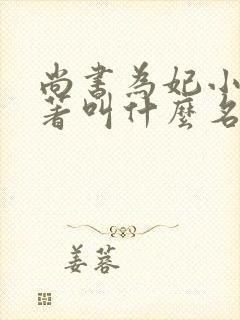 尚書為妃小
著叫什麼名
姜蓉